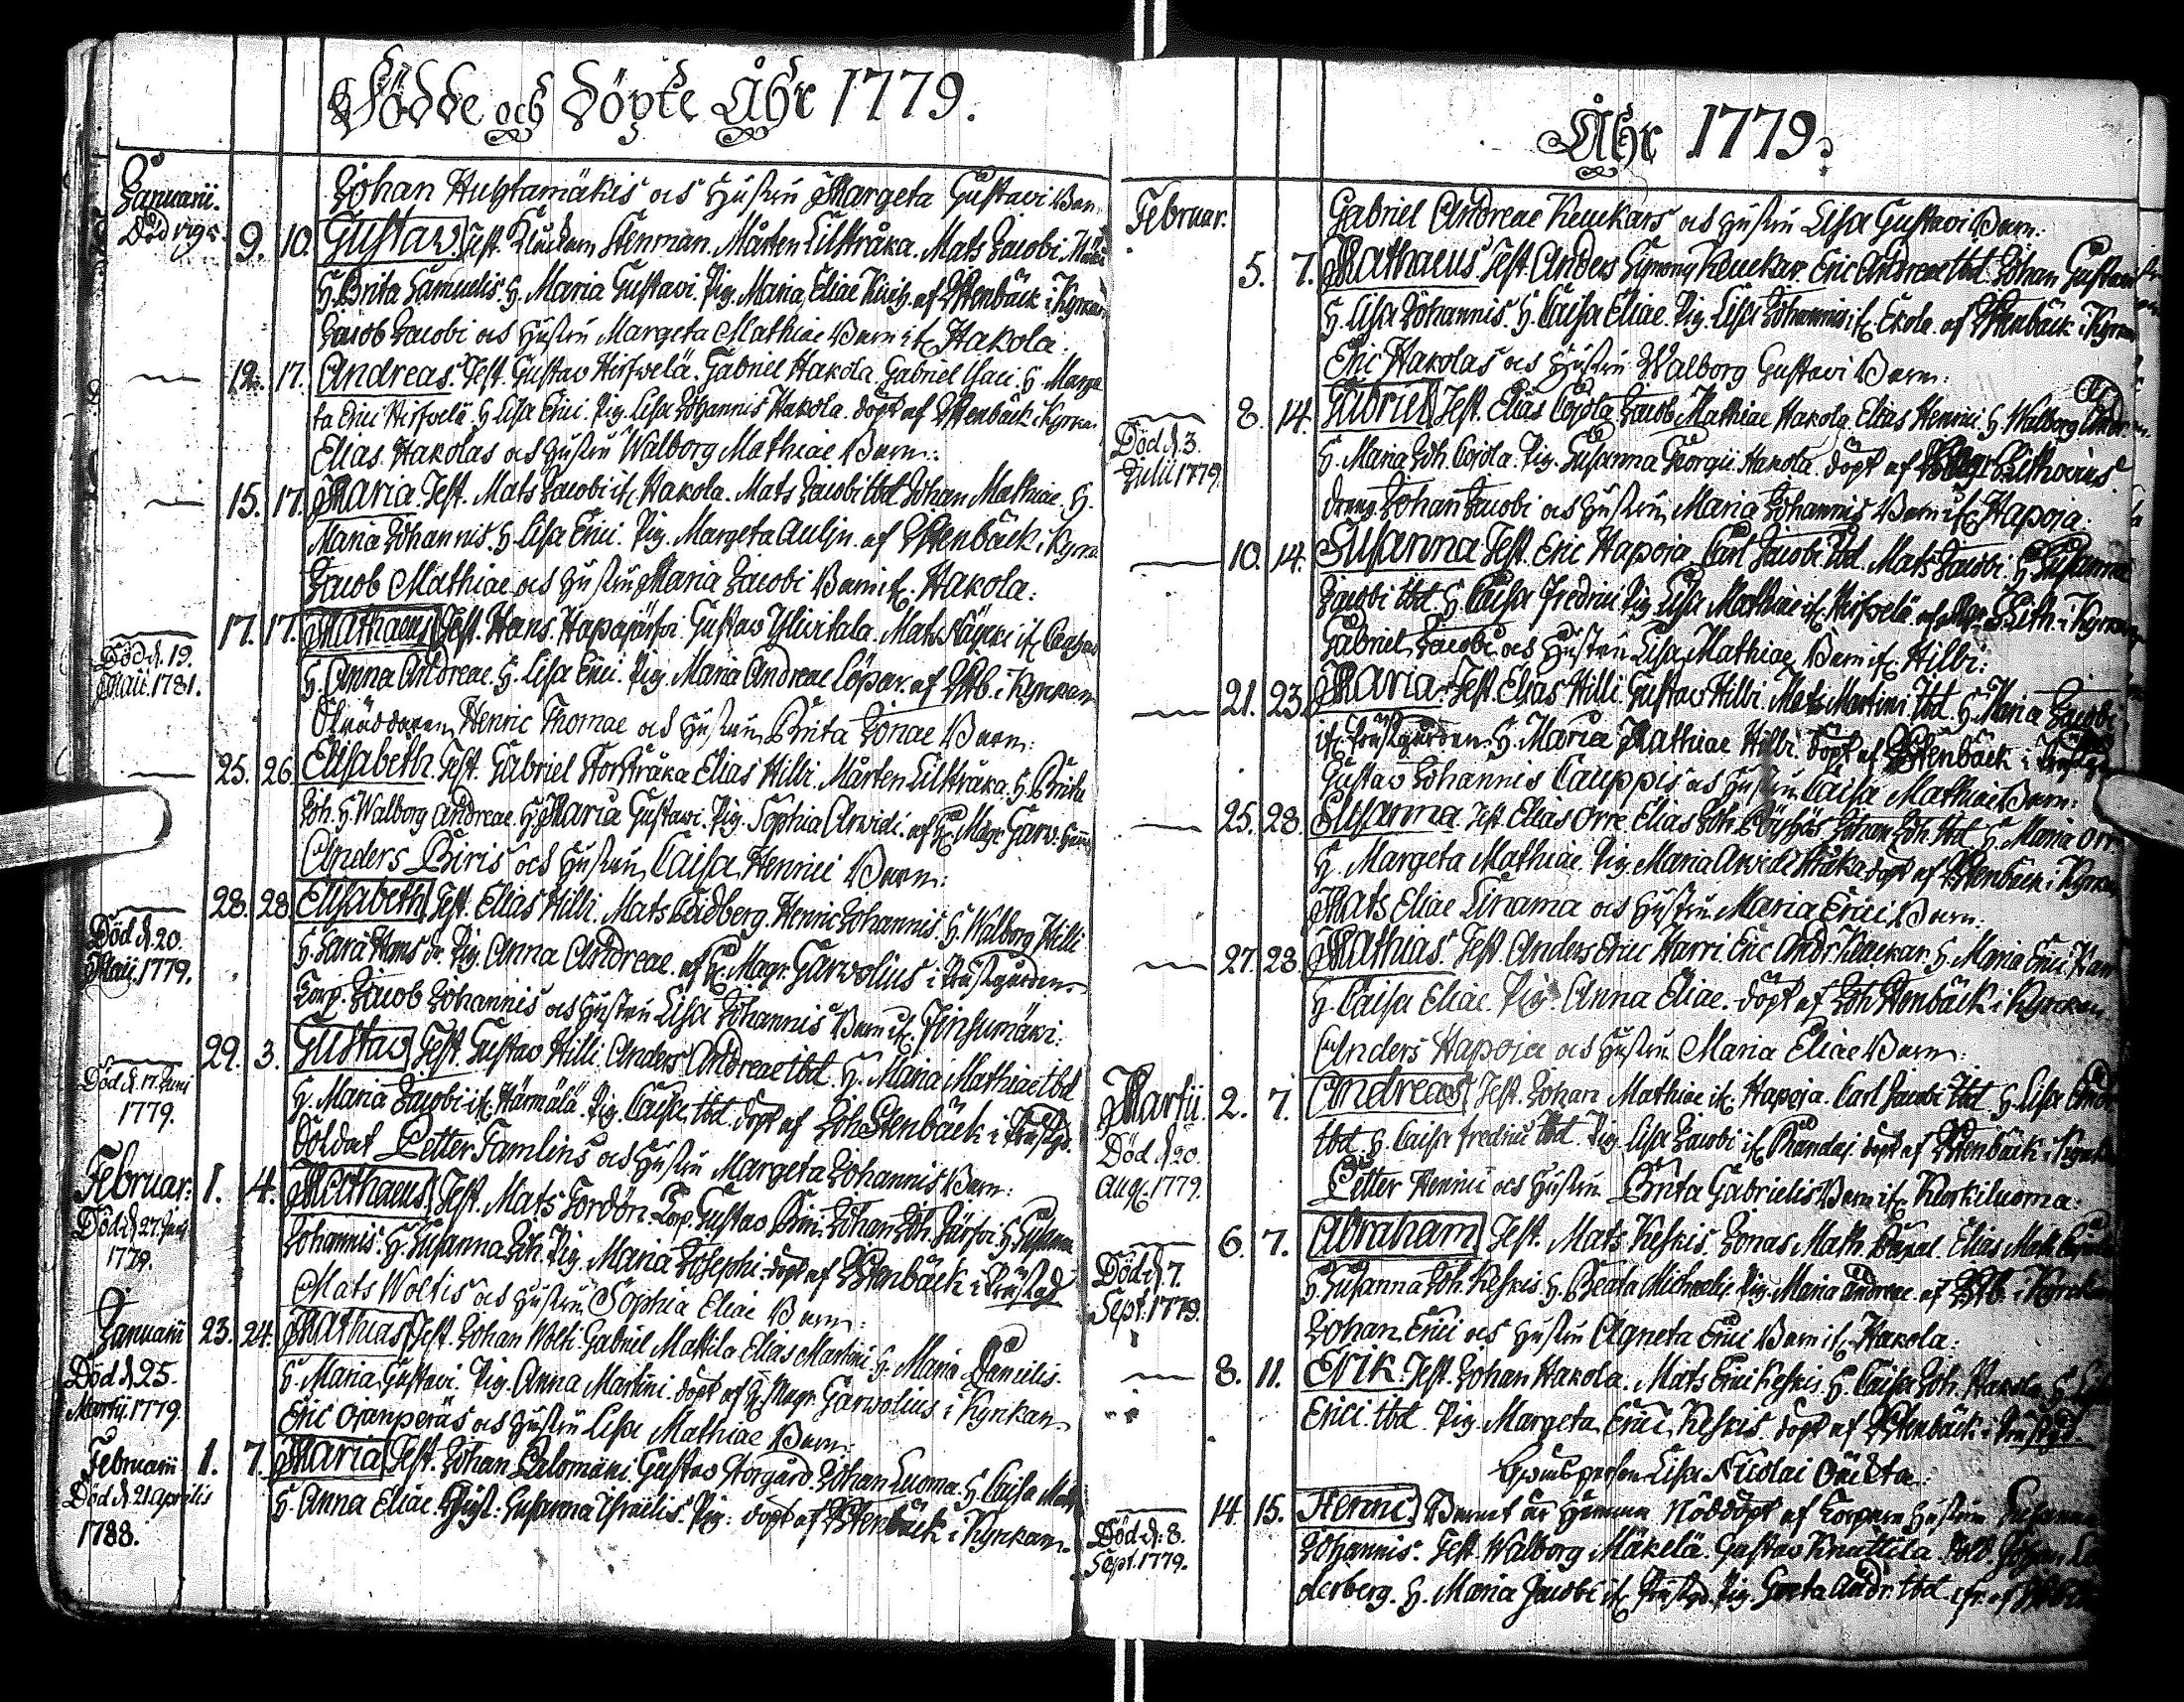 Födde och Döpte Åhr 1779.
Januarii.
Johan Huhtamäkis och Hustru Margeta Gustavi Barn
9. 10. Gustav. Test. Klockaren Stenman. Mårten Lillstråka. Mats Jacobi
H. Brita Samuelis. H. Maria Gustavi. Pig. Maria Eliae af Stenbäck i Kyrkan
Jacob Jacobi och Hustru Margeta Mathiae Barn if. Hakola.
12. 17. Andreas. Test. Gustav Hirfvelä. Gabriel Hakola. Gabriel Isaci. H. Marge
ta Erici Hirfvelä. H. Lisa Erici. Pig. Lisa Johannis Hakola. döpt af Stenbäck i Kyrkan
Elias Hakolas och Hustru Walborg Mathiae Barn:
15. 17. Maria. Test. Mats Jacobi if. Hakola. Mats Jacobi ibd. Johan Mathiae. H.
Maria Johannis. H. Lisa Erici. Pig. Margeta Aulin. af Stenbäck i Kyrka
Jacob Mathiae och Hustru Maria Jacobi Barn if. Hakola:
17. 17. Mathaeus Test. Hans Hapajärfvi. Gustav Ylivitala. Mats if.
Död d. 19. Maii. 1781.
H. Anna Andreae. H. Lisa Erici. Pig. Maria Andreae Löpar. af Stb. i Kyrkan
Skräddaren Henric Thomae och Hustrun Brita Jonae Barn:
25. 26. Elisabeth. Test. Gabriel Storstråka Elias Hilli. Mårten Lillstråka. H. Brita
Joh. H. Walborg Andreae. H. Maria Gustavi. Pig. Sophia Arvidi. af H. Magr. Garv.
Anders Biris och Hustru Caisa Henrici Barn:
28. 28. Elisabeth Test. Elias Hilli. Mats Leidberg. Henric Johannis. H. Walborg Hilli
Död d. 20. Maii. 1779.
H. Sara Hans dr. Pig. Anna Andreae. af H. Magr. Garvolius i Prästgården.
Corp. Jacob Johannis och Hustru Lisa Johannis Barn if.
29. 3. Gustav Test. Gustav Hilli. Anders Andreae ibd. H. Maria Mathiae ibd
Död d. 17. Juni 1779.
H. Maria Jacobi if. Härmälä. Pig. Caisa ibd. döpt af Joh. Stenbäck i Prästgd.
Soldat Petter Tamlins och Hustru Margeta Johannis Barn:
Februar: 1. 4. Mathaeus. Test. Mats Fordön. Corp. Gustav Johan Joh. Järfvi. H. Susanna
Död d. 27. 1779.
Johannis. H. Susanna Joh. Pig. Maria Josephi. döpt af Stenbäck i Prästgd
Mats Woltis och Hustru Sophia Eliae Barn:
Januarii 23. 24. Mathias Test. Johan Wolti. Gabriel Mattila Elias Martini. H. Maria Danielis.
Död d. 25. Martij. 1779.
H. Maria Gustavi. Pig. Anna Martini. döpt af H. Magr. Garvolius i Kyrkan.
Eric Ojanperäs och Hustru Lisa Mathiae Barn:
Februarii 1. 7. Maria Test. Johan Salomäki Gustav Storgård. Johan Luoma. H. Caisa
Död d. 21 Aprilis 1788.
H. Anna Eliae. Susanna Israelis. Pig: döpt af Stenbäck i Kyrkan.
Åhr 1779.
Februar.
Gabriel Andreae Keuckars och Hustru Lisa Gustavi Barn:
5. 7. Mathaeus Test. Anders Simonis Keuckar. Eric Andreae ibd. Johan Gustavi
H. Lisa Johannis. H. Caisa Eliae. Pig. Lisa Johannis if. Ekola. af Stenbäck i Kyrkan
Eric Hakolas och Hustru Walborg Gustavi Barn:
8. 14. Gabriel Test. Elias Cojola Jacob Mathiae Hakola Elias Henrici H. Walborg
Död d. 3. Julii 1779.
H. Maria Joh. Cojola. Pig. Susanna Georgii Hakola. döpt af Lithovius
Dreng Johan Jacobi och Hustrun Maria Johannis Barn if. Hapoja:
10. 14. Susanna Test. Eric Hapoja Carl Jacobi ibd. Mats Jacobi. H. Susanna
Jacobi ibd. H. Caisa Fredrici Pig. Lisa Mathiae if. Hirfvelä. af Lith. i Kyrkan
Gabriel Jacobi och Hustru Lisa Mathiae Barn if. Hilli:
21. 23. Maria. Test. Elias Hilli Gustav Hilli. Mats Martini ibd. H. Maria Jacobi
if. Prästgården. H. Maria Mathiae Hilli. döpt af Stenbäck i
Gustav Johannis Cauppis och Hustru Caisa Mathiae Barn:
25. 28. Susanna Test. Elias Orre Elias Joh. Johan Joh. ibd H. Maria Orr
H. Margeta Mathiae. Pig. Maria Arvidi Stråka döpt af Stenbäck i Kyrkan
Mats Eliae Linama och Hustru Maria Erici Barn:
27. 28. Mathias. Test. Anders Erici Harri Eric Andr. Keuckar. H. Maria Erici Harr
H. Caisa Eliae. Pig. Anna Eliae. döpt af Joh Stenbäck i Kyrckan
Anders Hapoja och Hustru Maria Eliae Barn:
Martii. 2. 7. Andreas Test. Johan Mathiae if. Hapoja. Carl Jacobi ibd H. Lisa
Död d. 20. Aug. 1779.
ibd H. Caisa Fredrici ibd. Pig. Lisa Jacobi if. döpt af Stenbäck i
Petter Henrici och Hustru Brita Gabrielis Barn if. Kortiluoma:
6. 7. Abraham Test. Mats Keskis. Jonas Math. Elias Math.
Död d. 7. Sept. 1779.
H. Susanna Joh. Keskis. H. Beata Michaelis. Pig. Maria Andreae. af Stb. i Kyrckan
Johan Erici och Hustru Agneta Erici Barn if. Hakola:
8. 11. Erik. Test. Johan Hakola. Mats Erici Keskis. H. Caisa Joh. Hakola. H.
Erici ibd. Pig. Margeta Erici Keskis. döpt af Stenbäck i Prästgd.
Qwinsperson Lisa Nicolai
14. 15. Henric. Barnet är Hemma Nöddöpt af Corporn Hustru Susanna
Död d. 8. Sept. 1779.
Johannis. Test. Walborg Mäkelä. Gustav Knuttila. Sold. Johan
derberg. H. Maria Jacobi if. Prästgd. Pig. Greta Andr. ibd.